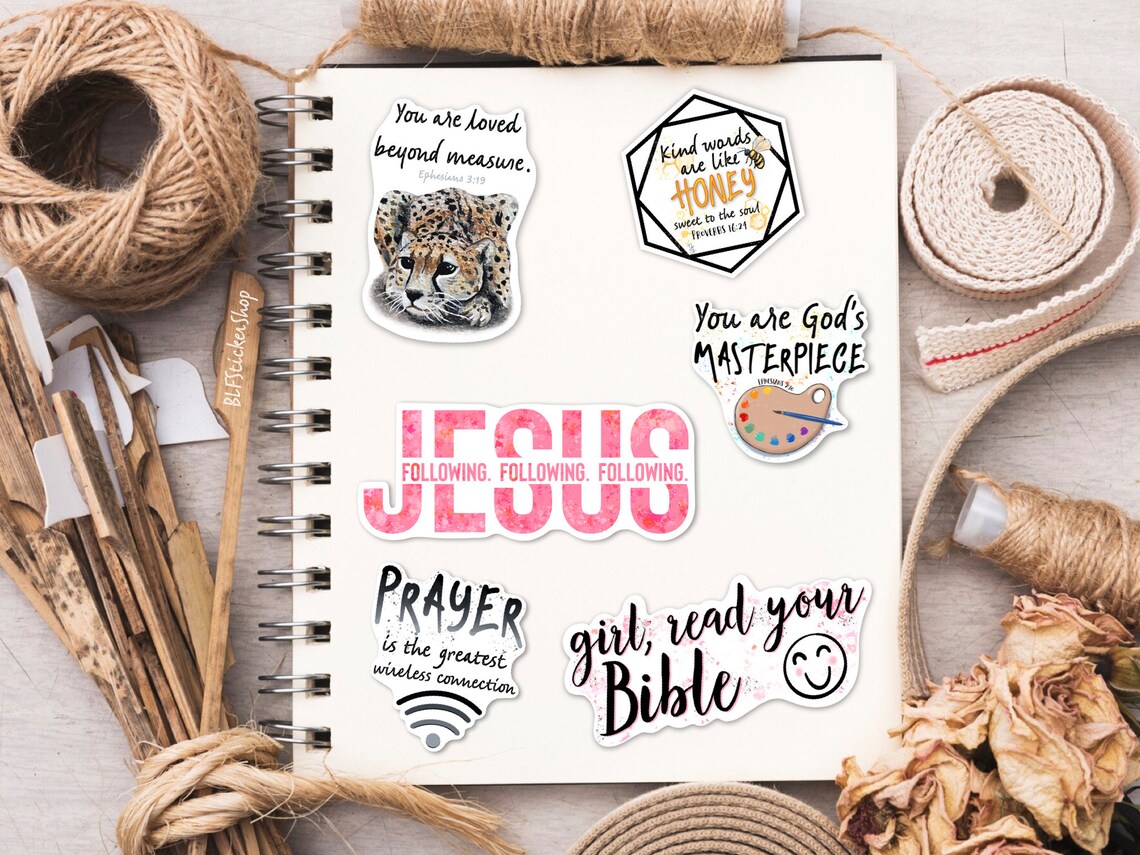 You are loved
beyond measure.
Ephesians 3:19
Kind words
are like
HONEY
sweet to the soul
PROVERBS 16:24
You are God's
MASTERPIECE
EPHESIANS 2:10
BLFStickerShop
JESUS
FOLLOWING. FOLLOWING. FOLLOWING.
PRAYER
is the greatest
wireless connection
girl, read your
Bible